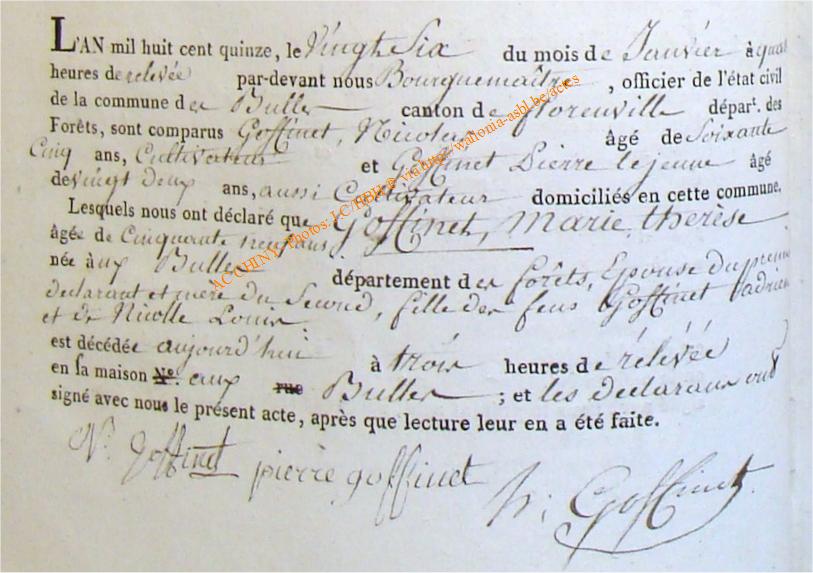 L'AN mil huit cent quinze, le Vingt Six du mois de Janvier à quatre
heures de relevée par-devant nous Bourguemaitre, officier de l'état civil
de la commune des Bulles canton de florenville départ. des
Forêts, sont comparus Goffinet, Nicolas âgé de Soixante
Cinq ans, Cultivateur et Goffinet Pierre le jeune âgé
de vingt deux ans, aussi Cultivateur domiciliés en cette commune.
Lesquels nous ont déclaré que Goffinet, Marie, therèse
âgée de Cinquante neuf ans
née aux Bulles département des forêts, Epouse du premier
declarant et mère du Second, fille des feus Goffinet
et de Nicolle Louise
est décédée aujourd'hui à trois heures de rélévée
en sa maison N.º aux rue Bulles ; et les declarans ont
signé avec nous le présent acte, après que lecture leur en a été faite.
N. Goffinet pierre goffinet
Goffinet
AC CHINY, Photos: LC/EBH-P via http://wallonia-asbl.be/actes